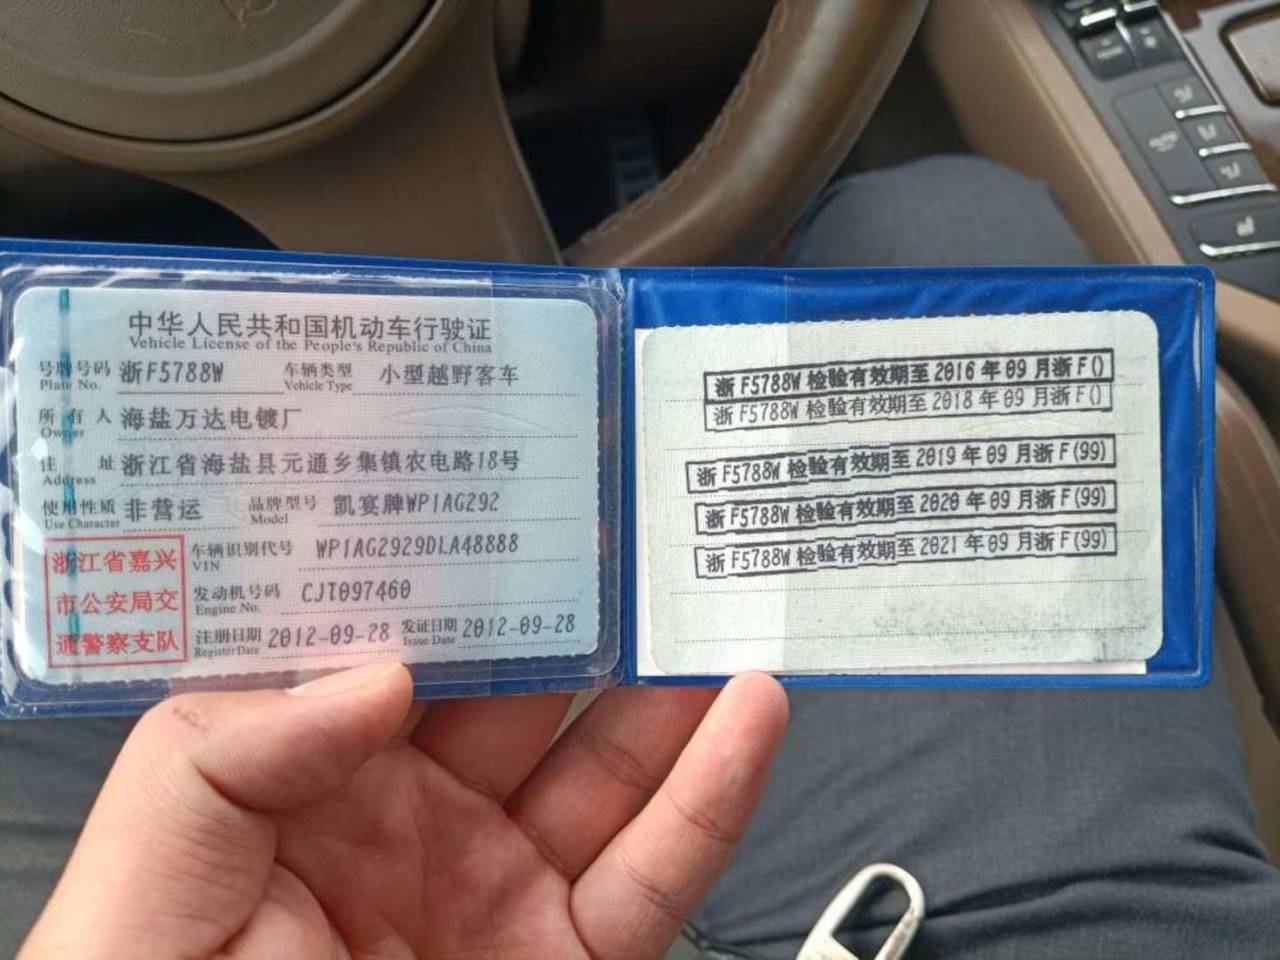 中华人民共和国机动车行驶证
Vehicle License of the People's Republic of China
号牌号码 浙F5788W 车辆类型 小型越野客车
Plate No. Vehicle Type
所有人 海盐万达电镀厂
Owner
住址 浙江省海盐县元通乡集镇农电路18号
Address
使用性质 非营运 品牌型号 凯宴牌WP1AG292
Use Character Model
车辆识别代号 WP1AG2929DLA48888
VIN
发动机号码 CJT097460
Engine No.
注册日期 2012-09-28 发证日期 2012-09-28
Register Date Issue Date
浙江省嘉兴
市公安局交
通警察支队
浙F5788W检验有效期至2016年09月浙F()
浙F5788W检验有效期至2018年09月浙F()
浙F5788W检验有效期至2019年09月浙F(99)
浙F5788W检验有效期至2020年09月浙F(99)
浙F5788W检验有效期至2021年09月浙F(99)